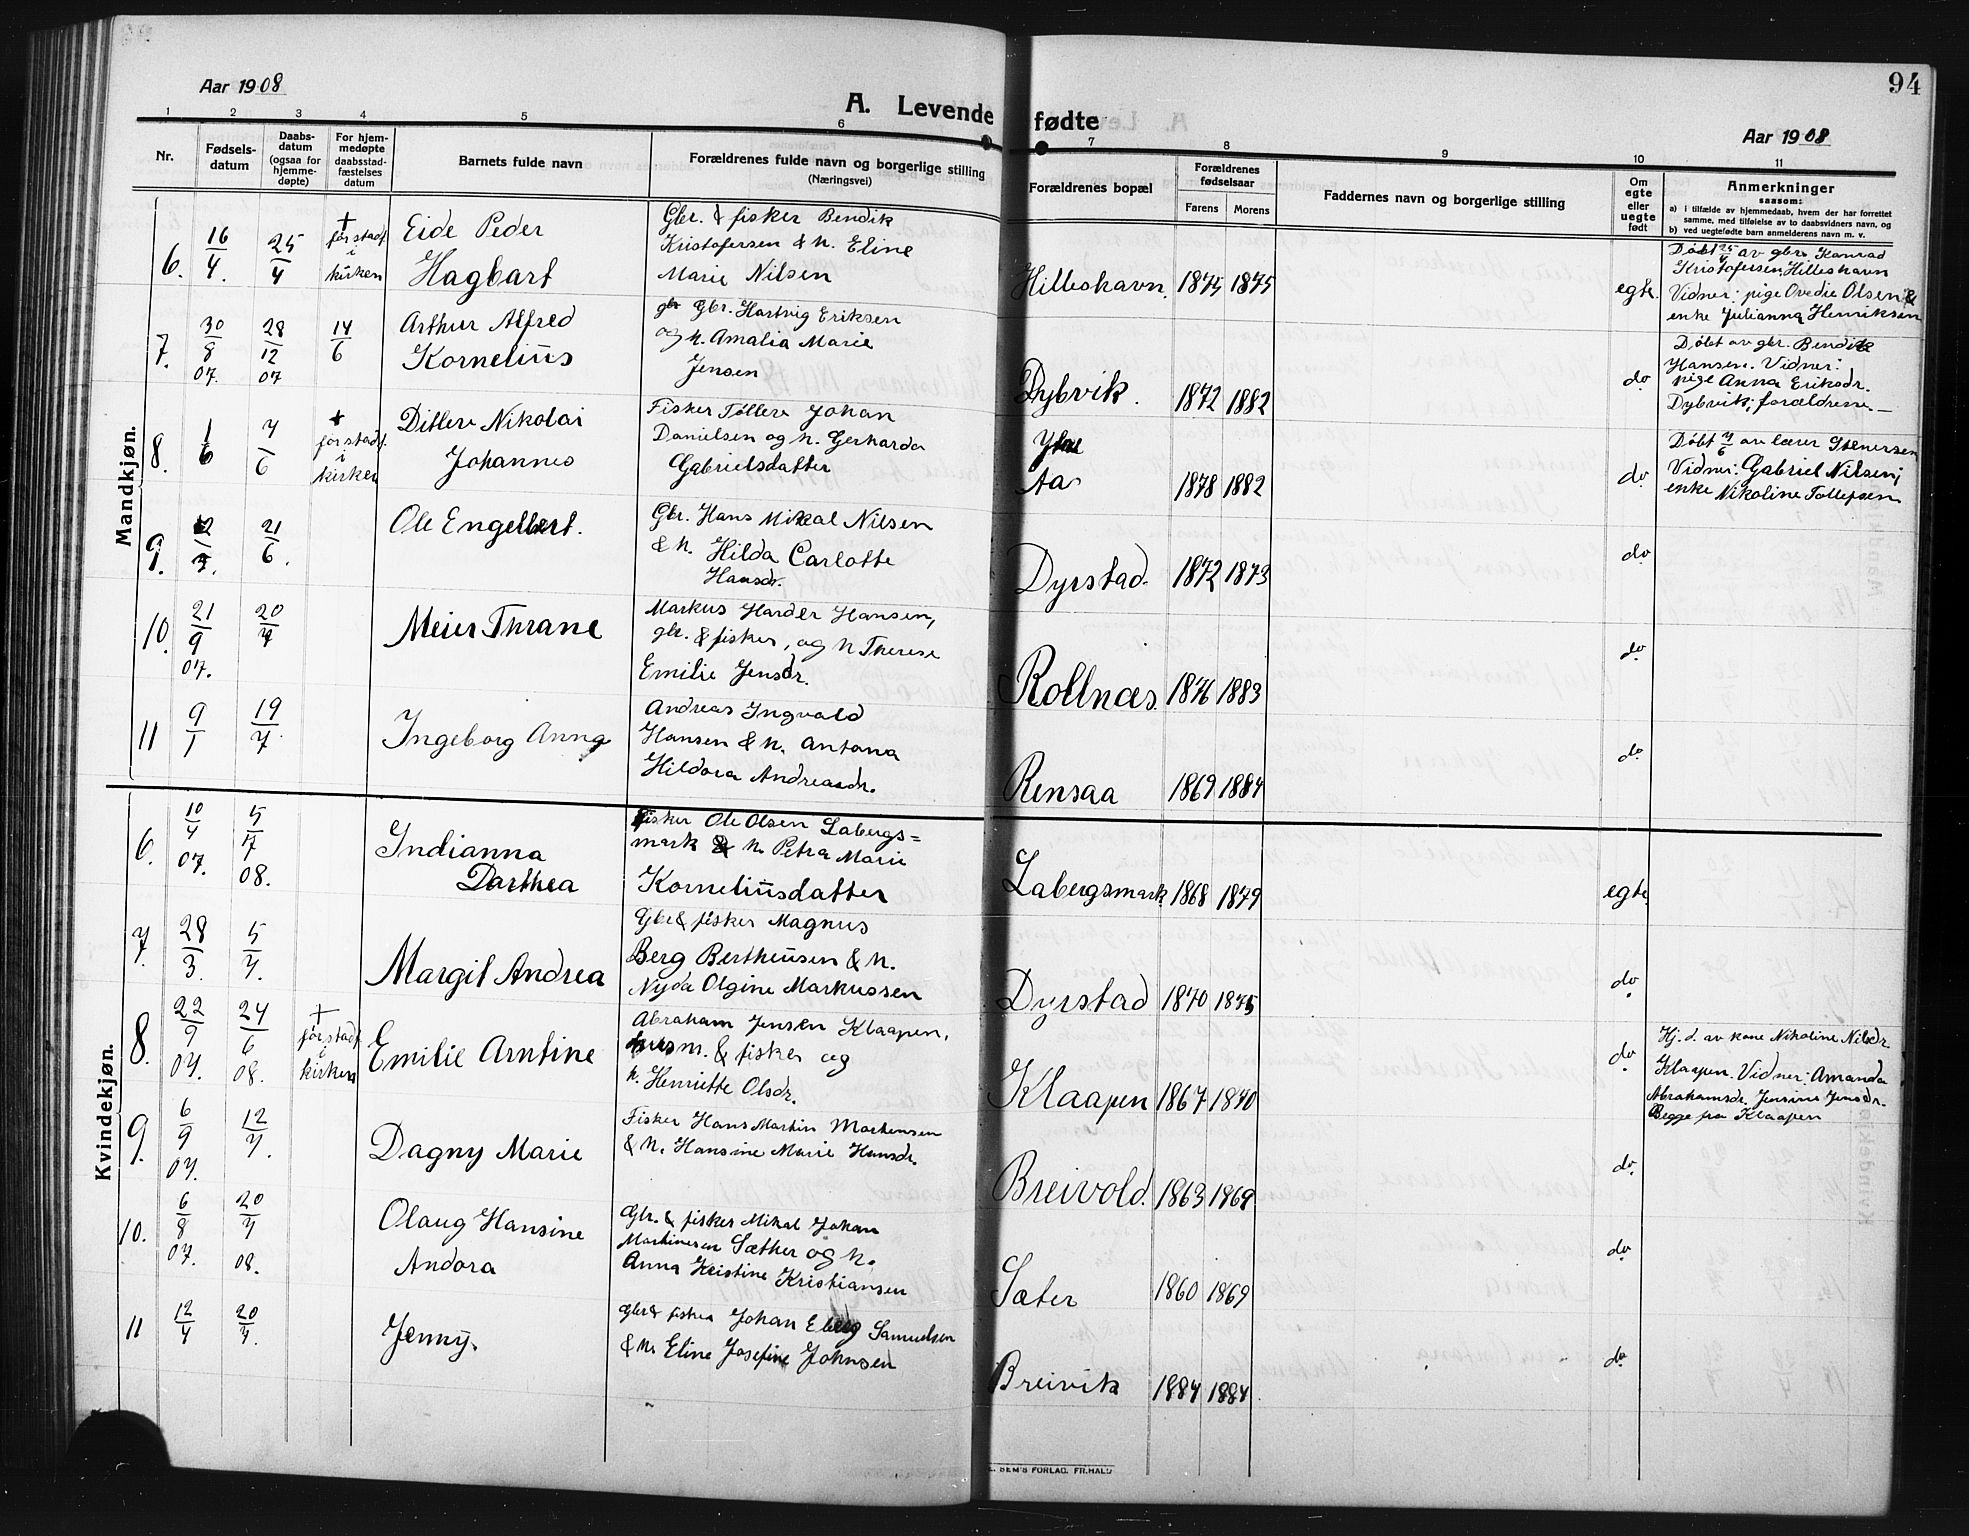 94
Aar 1908
A. Levende fødte
Aar 1908
1 2 3 4 5 6 7 8 9 10 11
Nr.
Fødsels-
datum
Daabs-
datum
(ogsaa for
hjemme-
døpte)
For hjem-
medøpte
daabsstad-
fæstelses
datum
Barnets fulde navn
Forældrenes fulde navn og borgerlige stilling
(Næringsvei)
Forældrenes bopæl
Forældrenes
fødselsaar
Farens Morens
Faddernes navn og borgerlige stilling
Om
egte
eller
uegte
født
Anmerkninger
saasom:
a) i tilfælde av hjemmedaab, hvem der har forrettet
samme, med tilføielse av to daabsvidners navn, og
b) ved uegtefødte barn anmelderens navn m. v.
Mandkjøn.
6. 16/4. 25/4
+
før stadf.
i
kirken
Eide Peder
Hagbart
Gbr. & fisker Bendik
Kristofersen & h. Eline
Marie Nilsen
Hilleshavn. 1875 1875
egte.
Døbt 25/4 av gbr. Konrad
Kristofersen, Hilleshavn
Vidner: pige Ovedie Olsen &
enke Julianna Henriksen
7. 30/8 07. 28/12 07 14/6
Arthur Alfred
Kornelius
Gbr. Hartvig Eriksen
og h. Amalia Marie
Jensen
Dybvik. 1872 1882
do
Døbt av gbr. Bendik
Hansen. Vidner:
pige Anna Eriksdr.
Dybvik; forældrene.
8. 1/6 7/6
+
før stadf.
i
kirken
Ditlev Nikolai
Johannes
Fisker Tollev Johan
Danielsen og h. Gerharda
Gabrielsdatter
Aa 1878 1882
do
Døbt 7/6 av lærer Stenersen
Vidner: Gabriel Nilsen;
enke Nikoline Tollefsen
9. 21/6.
Ole Engelbert.
Gbr. Hans Mikal Nilsen
& h. Hilda Carlotte
Hansdr.
Dyrstad. 1872 1873
do
10. 21/9 07. 20/7
Meier Thrane
Markus Harder Hansen,
gbr. & fisker, og h Therese
Emilie Jensdr.
Rollnæs. 1876 1883
do
11 9/1 19/7
Ingeborg Anna
Andreas Ingvald
Hansen & h. Antona
Hildora Andreasdr.
Rensaa 1869 1884
do
Kvindekjøn.
6. 10/4 07. 5/7 08.
Indianna
Darthea
Fisker Ole Olsen Labergs-
mark & h. Petra Marie
Korneliusdatter
Labergsmark 1868 1879
egte.
7. 28/3. 5/7.
Margit Andrea
Gbr & fisker Magnus
Berg Bertheusen & h.
Nyda Olgine Markussen
Dyrstad 1870 1875
do
8. 22/9 07. 24/6 08.
+
før stadf.
i
kirken
Emilie Arntine
Abraham Jensen Klaapen,
husm. & fisker og
h. Henriette Olsdr.
Klaapen 1867 1870
do
Hj. d. av kone Nikoline Nilsdr.
Klaapen. Vidner: Amanda
Abrahamsdr. Jensine Jensdr.
Begge fra Klaapen
9. 6/9 07. 12/7.
Dagny Marie
Fisker Hans Martin Martinsen
& h. Hansine Marie Hansdr.
Breivold. 1863 1869
do
10. 6/8 07. 20/7 08.
Olaug Hansine
Andora
Gbr. & fisker Mikal Johan
Martinesen Sæther og h.
Anna Kristine Kristiansen
Sæter 1860 1869
do
11 12/4 20/7.
Jenny.
Gbr & fisker Johan Eberg Samuelsen
& h. Eline Josefine Johnsen
Breivik 1884 1884.
do
SEM'S FORLAG, FR.HALD